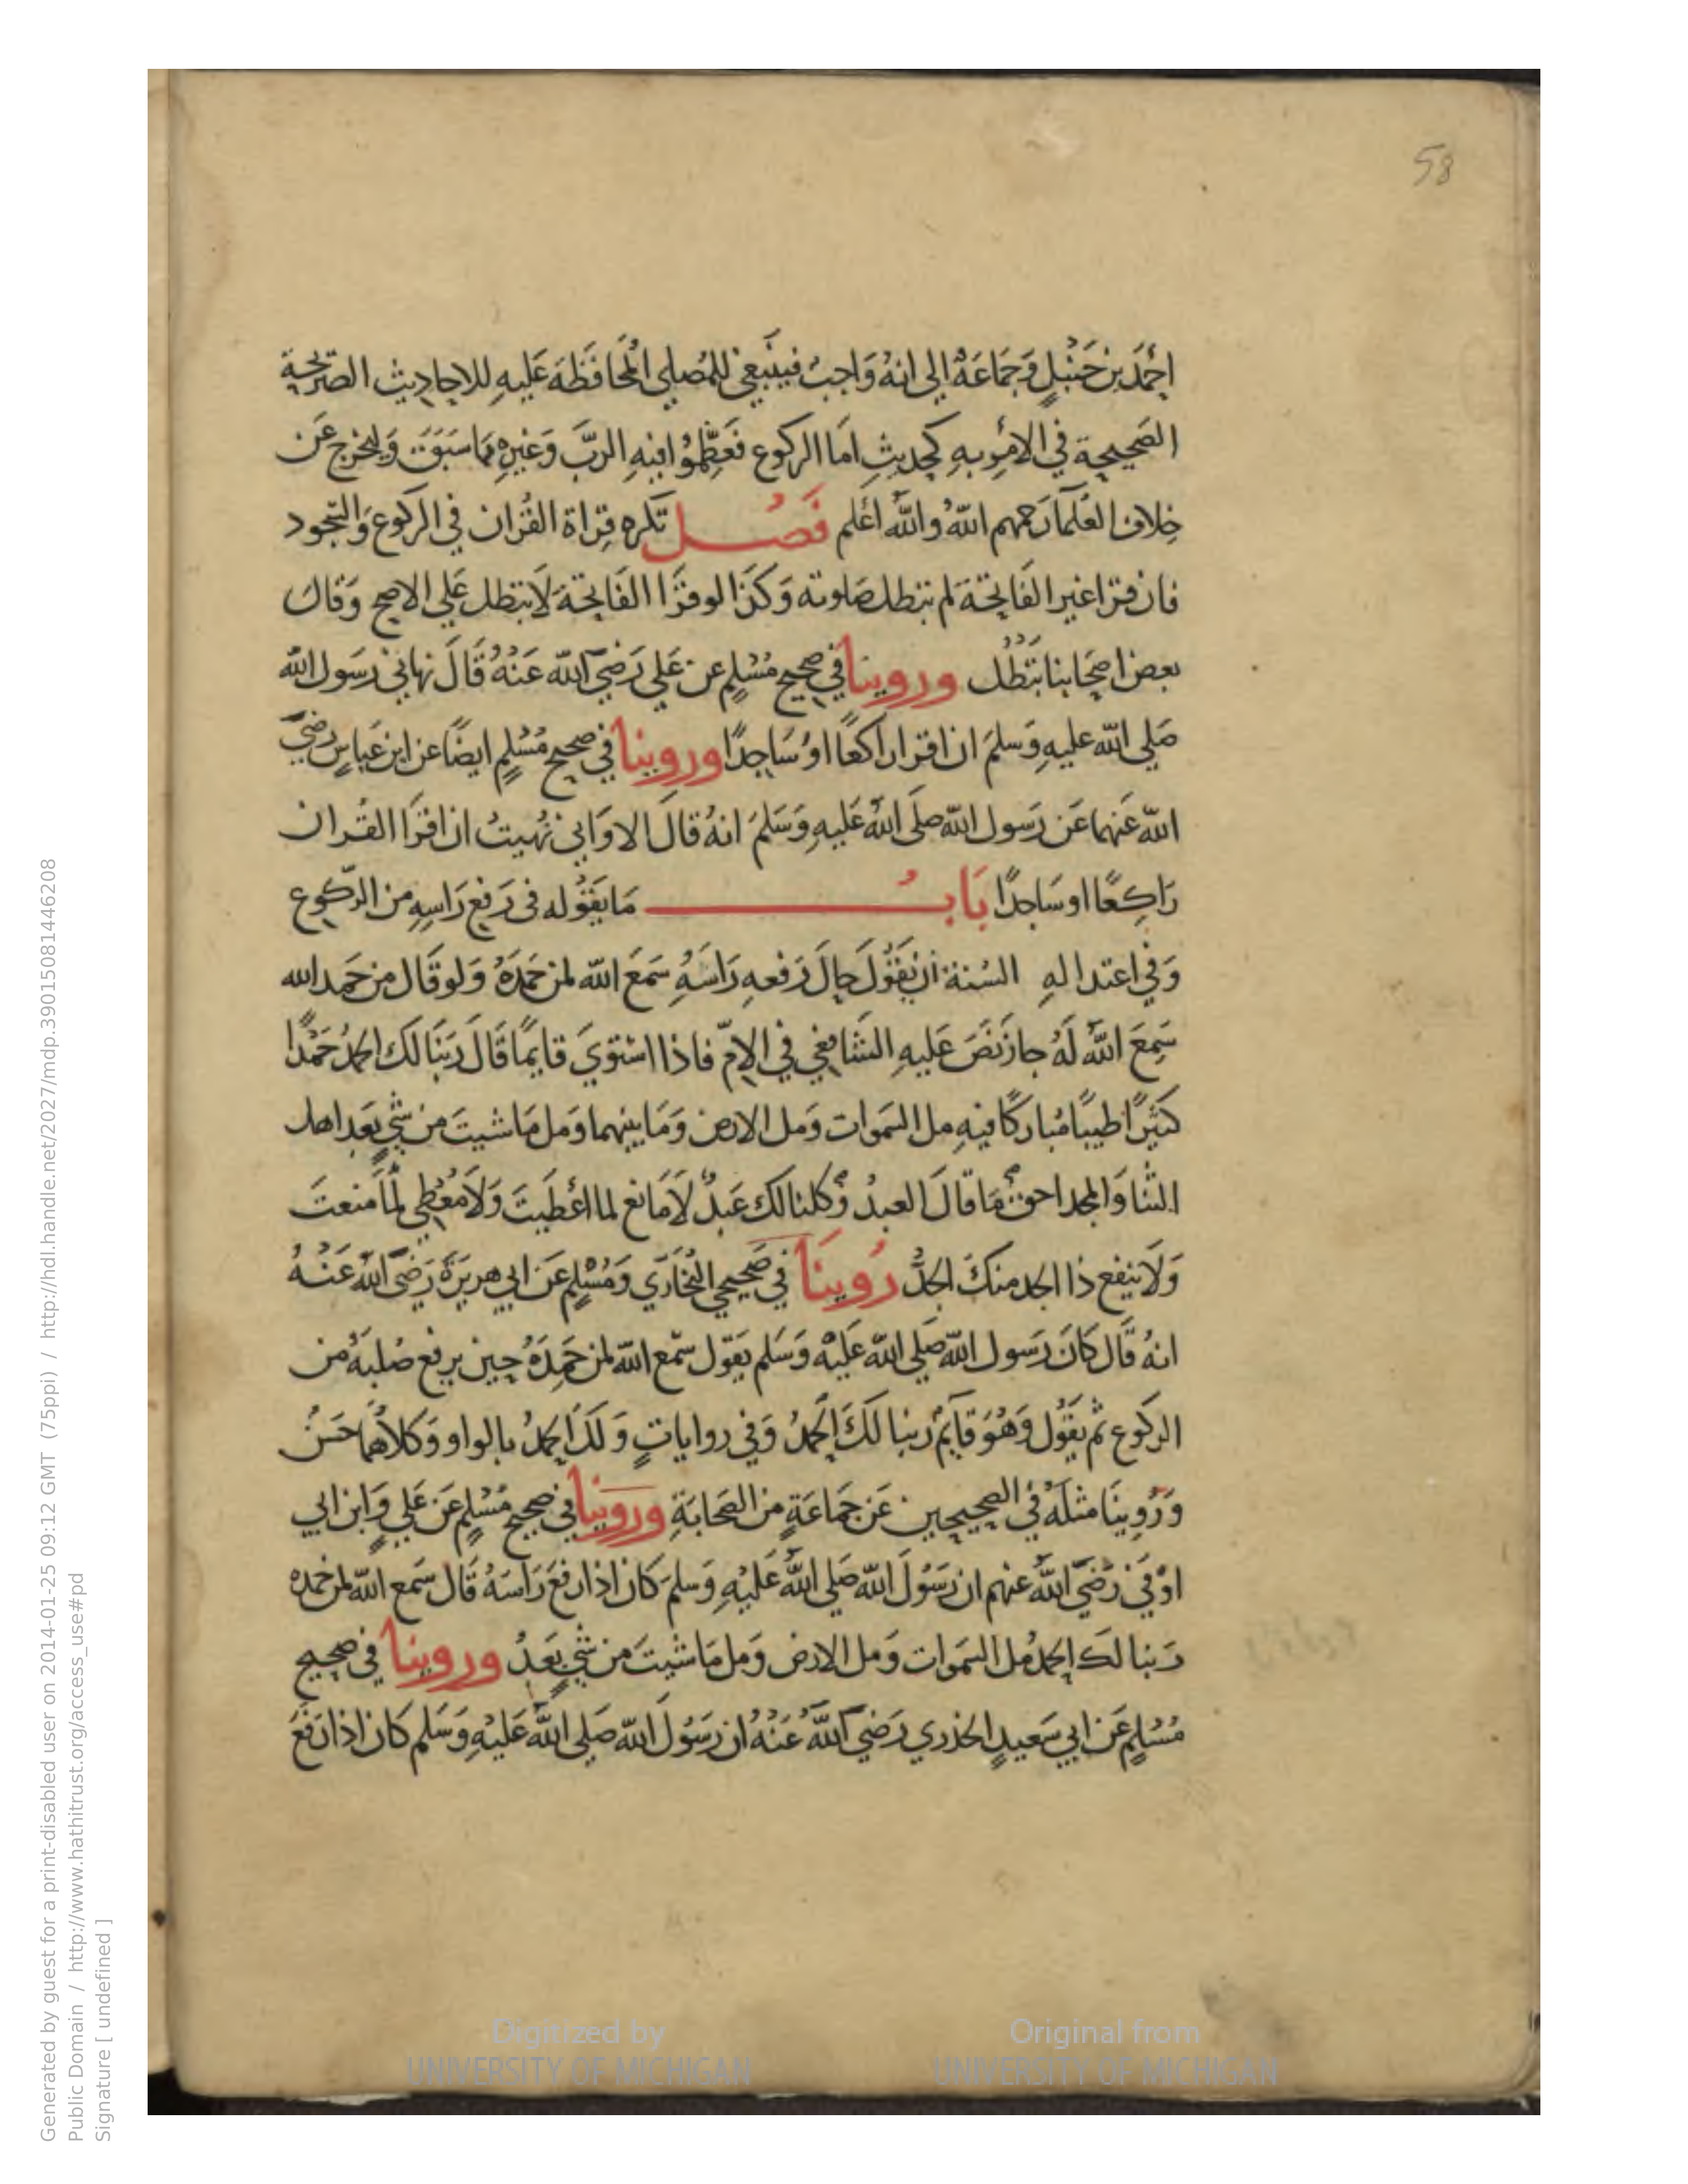 58
احمد بن حنبل وجماعة الي انه واجب فينبغي للمصلي المحافظة عليه للاحاديث الصريحة
الصحيحة في الامر به كحديث اما الركوع فعظموا فيه الرب وغيره مما سبق وليخرج عن
خلاف العلما رحمهم الله والله اعلم فصل تكره قراة القران في الركوع والسجود
فان قرا غير الفاتحة لم تبطل صلوته وكذا لو قرا الفاتحة لا تبطل علي الاصح وقال
بعض اصحابنا تبطل وروينا في صحيح مسلم عن علي رضي الله عنه قال نهاني رسول الله
صلي الله عليه وسلم ان اقرا راكعا او ساجدا وروينا في صحيح مسلم ايضا عن ابن عباس رضي
الله عنهما عن رسول الله صلي الله عليه وسلم انه قال الا واني نهيت ان اقرا القران
راكعا او ساجدا باب ما يقوله في رفع راسه من الركوع
وفي اعتداله السنة ان يقول حال رفعه راسه سمع الله لمن حمده ولو قال من حمد الله
سمع الله له جاز نص عليه الشافعي في الام فاذا استوي قايما قال ربنا لك الحمد حمدا
كثيرا طيبا مباركا فيه مل السموات ومل الارض وما بينهما ومل ما شيت من شي بعد اهل
الثنا والمجد احق ما قال العبد وكلنا لك عبد لا مانع لما اعطيت ولا معطي لما منعت
ولا ينفع ذا الجد منك الجد روينا في صحيحي البخاري ومسلم عن ابي هريرة رضي الله عنه
انه قال كان رسول الله صلي الله عليه وسلم يقول سمع الله لمن حمده حين يرفع صلبه من
الركوع ثم يقول وهو قايم ربنا لك الحمد وفي روايات ولك الحمد بالواو وكلاهما حسن
وروينا مثله في الصحيحين عن جماعة من الصحابة وروينا في صحيح مسلم عن علي وابن ابي
اوفي رضي الله عنهم ان رسول الله صلي الله عليه وسلم كان اذا رفع راسه قال سمع الله لمن حمده
ربنا لك الحمد مل السموات ومل الارض ومل ما شيت من شي بعد وروينا في صحيح
مسلم عن ابي سعيد الخدري رضي الله عنه ان رسول الله صلي الله عليه وسلم كان اذا رفع
Digitized by UNIVERSITY OF MICHIGAN
Original from UNIVERSITY OF MICHIGAN
Generated by guest for a print-disabled user on 2014-01-25 09:12 GMT (75ppi) / http://hdl.handle.net/2027/mdp.39015081446208
Public Domain / http://www.hathitrust.org/access_use#pd
Signature [ undefined ]